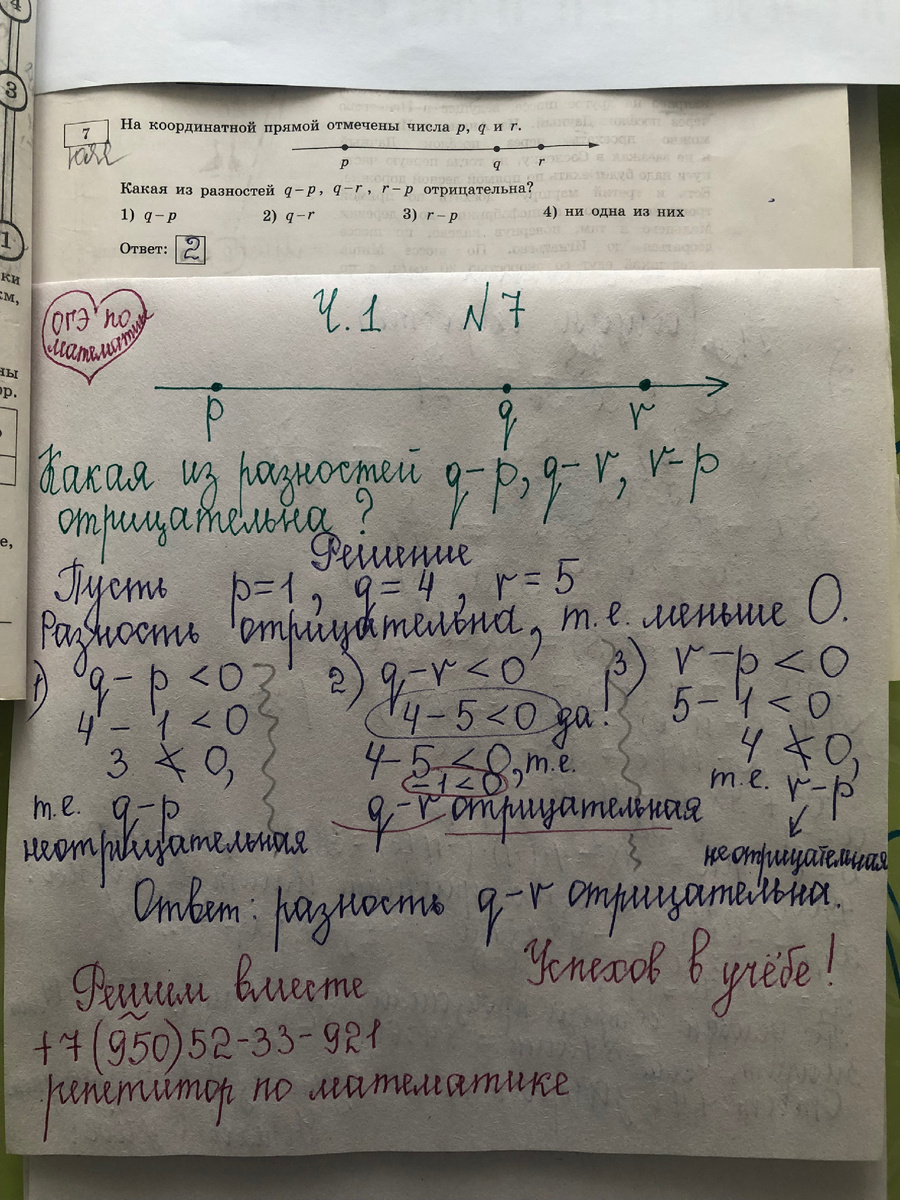 4
3
1
ки
км,
ны
ор.
е,
7
На координатной прямой отмечены числа p, q и r.
p q r
Какая из разностей q−p, q−r, r−p отрицательна?
1) q−p 2) q−r 3) r−p 4) ни одна из них
Ответ: 2
ОГЭ по
математике
Ч.1 N7
p q r
Какая из разностей q−p, q−r, r−p
отрицательна?
Решение
Пусть p=1, q=4, r=5
Разность отрицательна, т.е. меньше 0.
1) q−p<0
4−1<0
3≮0,
т.е. q−p
неотрицательная
2) q−r<0
4−5<0 да!
4−5<0, т.е.
−1<0
q−r отрицательная
3) r−p<0
5−1<0
4≮0,
т.е. r−p
неотрицательная
Ответ: разность q−r отрицательна.
Успехов в учёбе!
Решим вместе
+7(950)52-33-921
репетитор по математике